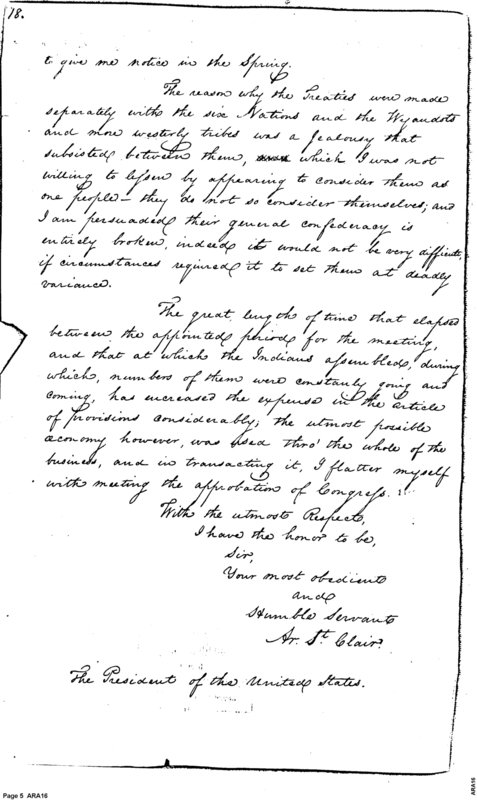 18.
to give me notice in the Spring.
The reason why the Treaties were made
separately with the six Nations and the Wyandots
and more westerly tribes was a jealousy that
subsisted between them, which I was not
willing to lessen by appearing to consider them as
one people – they do not so consider themselves; and
I am persuaded their general confederacy is
entirely broken, indeed it would not be very difficult,
if circumstances required it to set them at deadly
variance.
The great length of time that elapsed
between the appointed period for the meeting,
and that at which the Indians assembled, during
which, numbers of them were constantly going and
coming, has increased the expense in the article
of Provisions considerably; the utmost possible
œconomy however, was used thro' the whole of the
business, and in transacting it, I flatter myself
with meeting the approbation of Congress.
With the utmost Respect,
I have the honor to be,
Sir,
Your most obedient
and
Humble Servant
Ar. St. Clair.
The President of the United States.
Page 5 ARA16
ARA16